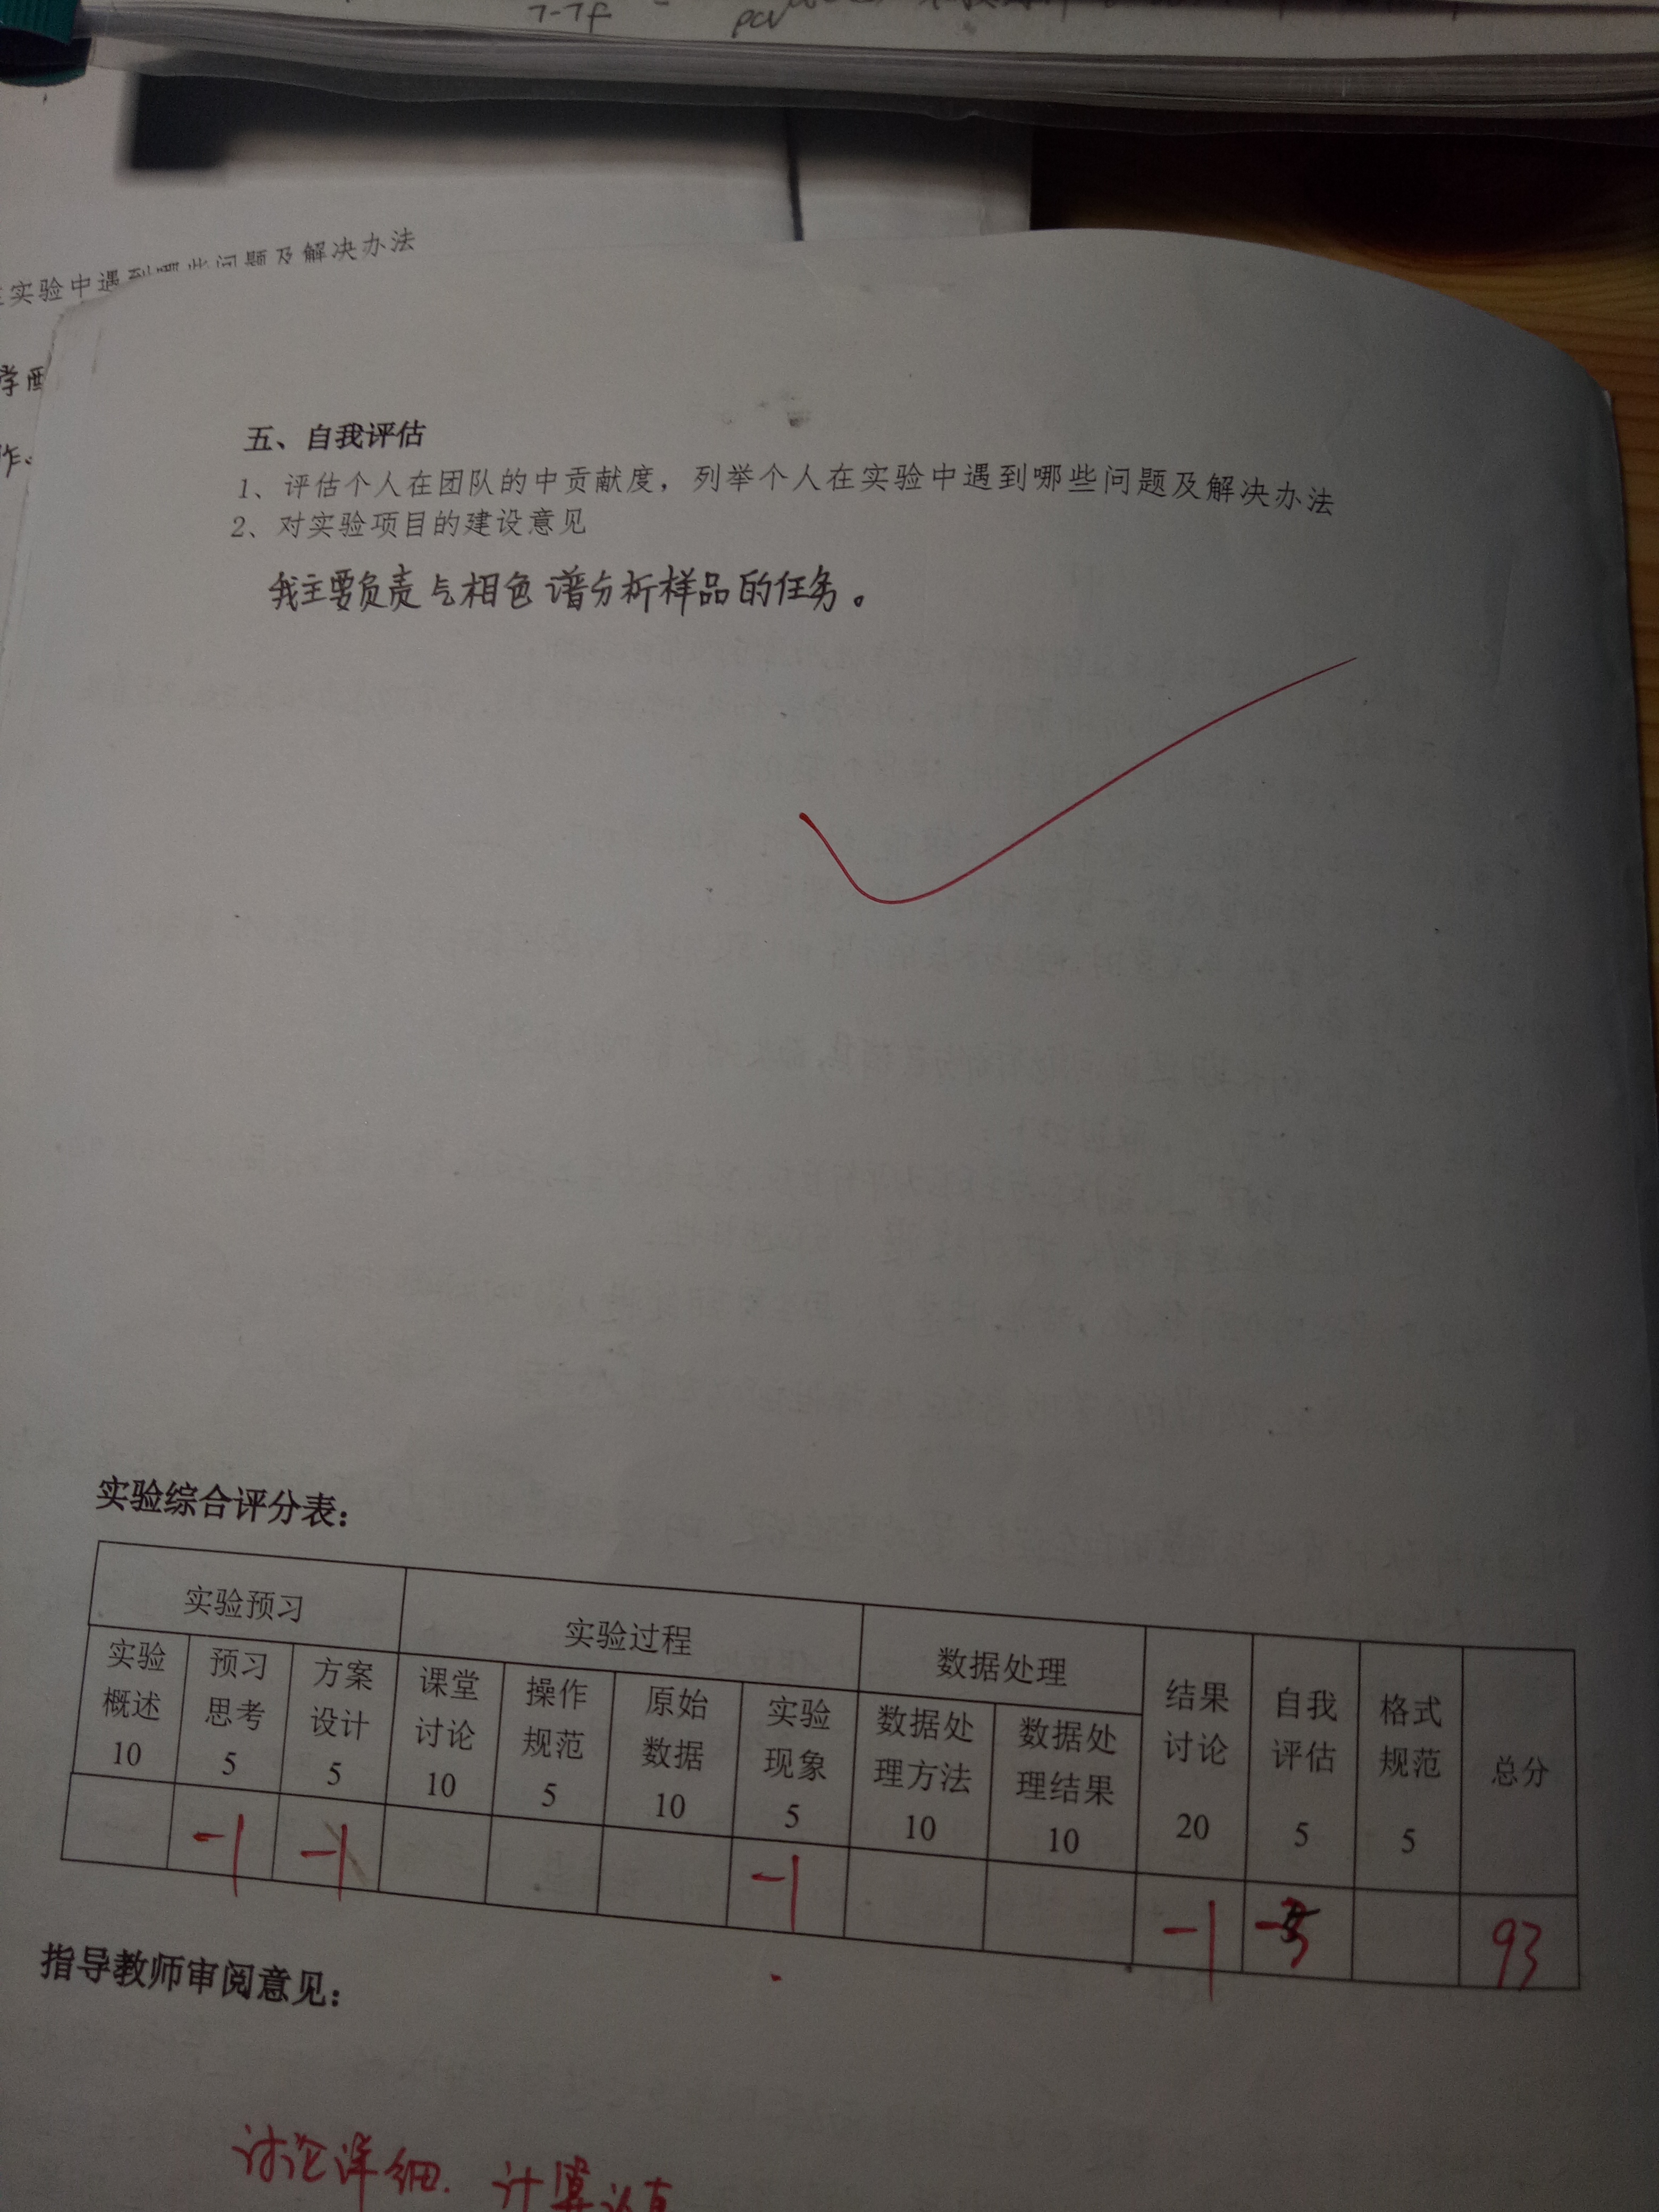 7-7f
实验中遇到哪些问题及解决办法
学
作.
五、自我评估
1、评估个人在团队的中贡献度，列举个人在实验中遇到哪些问题及解决办法
2、对实验项目的建设意见
我主要负责气相色谱分析样品的任务。
实验综合评分表：
实验预习 实验过程 数据处理 结果讨论 20 自我评估 5 格式规范 5 总分
实验概述 10 预习思考 5 方案设计 5 课堂讨论 10 操作规范 5 原始数据 10 实验现象 5 数据处理方法 10 数据处理结果 10
-1 -1 -1 -1 93
指导教师审阅意见：
讨论详细. 计算认真